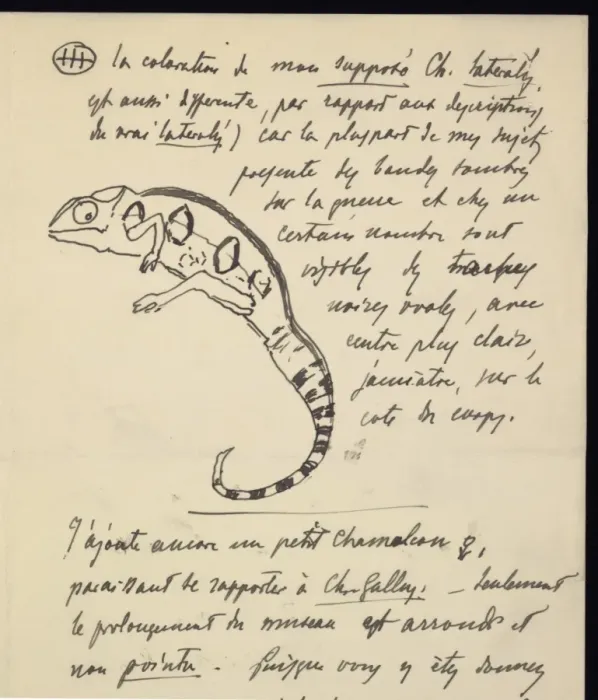 La coloration de mon supposé Ch. lateralis,
est aussi differente, par rapport aux descriptions
du vrai lateralis) car la pluspart de mes sujets
presente des bandes sombres
sur la queue et chez un
certain nombre sont
visibles des taches
noires ovales, avec
centre plus clair,
jaunatre, sur le
cote du corps.
J'ajoute encore un petit Chamaeleon ♀,
paraissant se rapporter à Ch. Gallus. – Seulement
le prolongement du museau est arrondi et
non pointu. Puisque vous y êtes donnez